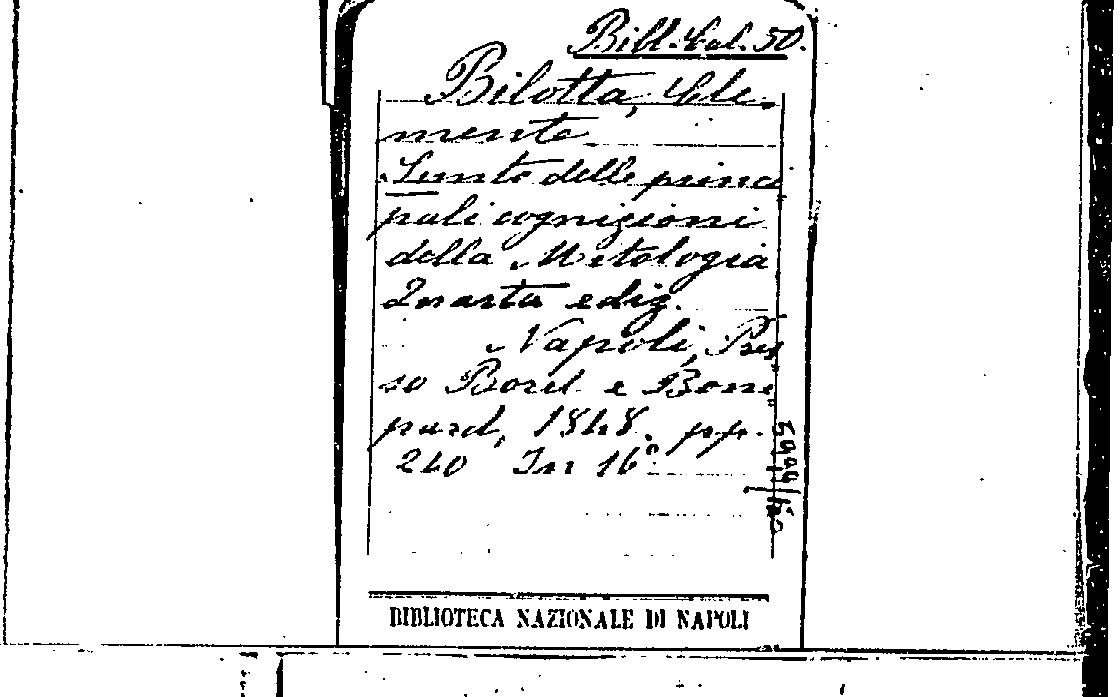 Bibl. Cal. 50.
Bilotta, Cle-
mente
Sunto delle princi
pali cognizioni
della Mitologia
Quarta ediz.
Napoli, Pres
so Borel e Bom
pard, 1848. pp.
240 In 16°
BIBLIOTECA NAZIONALE DI NAPOLI